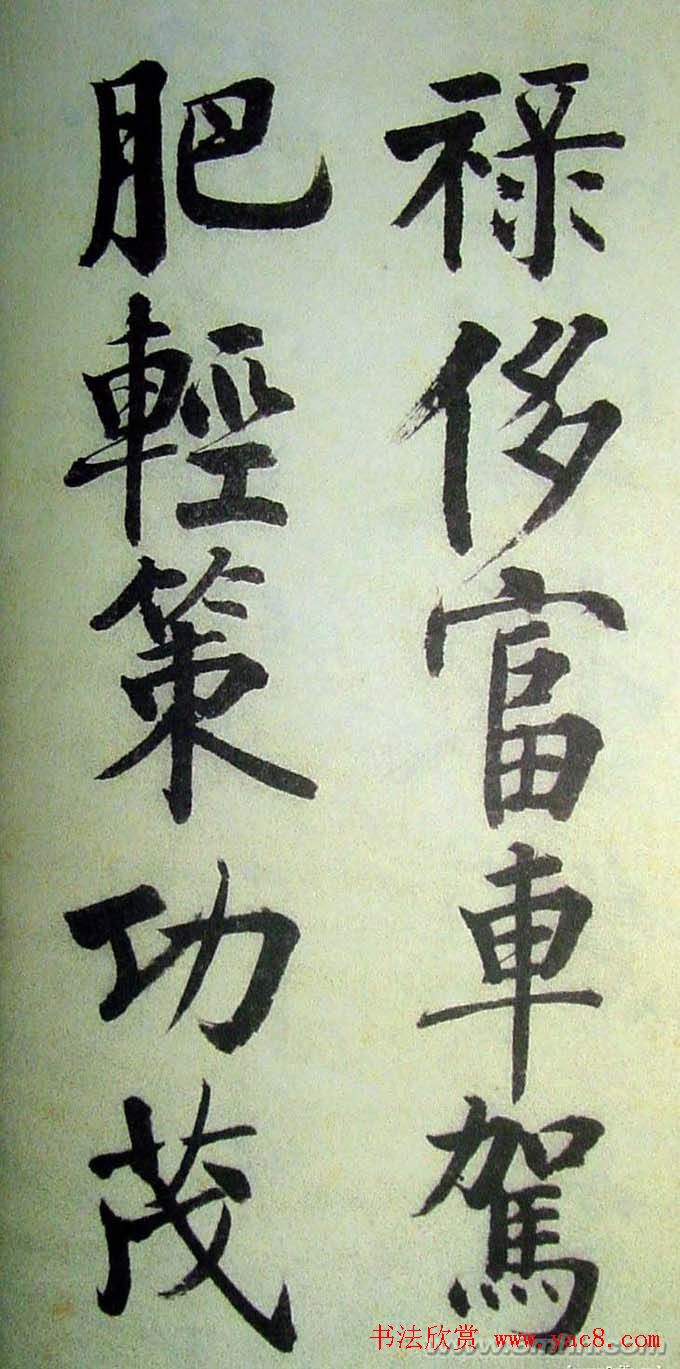 祿侈富車駕
肥輕策功茂
书法欣赏 www.yac8.com